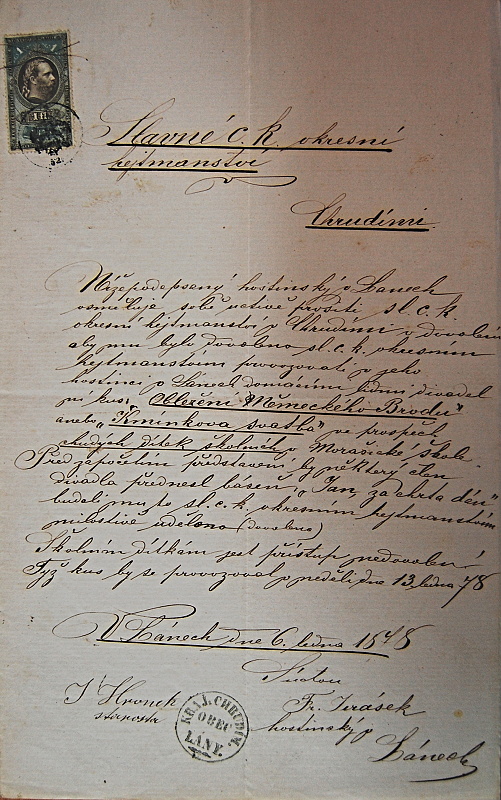 1
Slavné c. k. okresní
hejtmanství
Chrudími
Nížepodepsaný hostinský v Lánech
osměluje sobě uctivě prositi sl. c. k.
okresní hejtmanství v Chrudimi
aby mu bylo dovoleno sl. c. k. okresním
hejtmanstvím provozovati v jeho
hostinci v Lánech domácími lidmi divadel
ní kus: "Obležení Německého Brodu"
anebo "Kmínkova svatba" ve prospěch
chudých dítek školních v Morašické škole
Před započetím představení by některý člen
divadla přednesl báseň "Jan za chrta dán"
budeli mu to sl. c. k. okresním hejtmanstvím
milostivě uděleno (dovoleno)
Školním dítkám jest přístup nedovolen
Týž kus by se provozoval v neděli dne 13 ledna 78
V Lánech dne 6. ledna 1878
J. Hronek
starosta
KRAJ. CHRUDIM.
OBEC
LÁNY.
Fr. Jirásek
hostinský v
Lánech